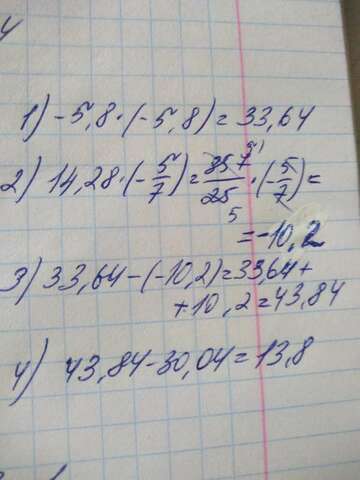 1) -5,8·(-5,8)=33,64
2) 14,28·(-5/7)=357/25·(-5/7)=
5
=-10,2
3) 33,64-(-10,2)=33,64+
+10,2=43,84
4) 43,84-30,04=13,8